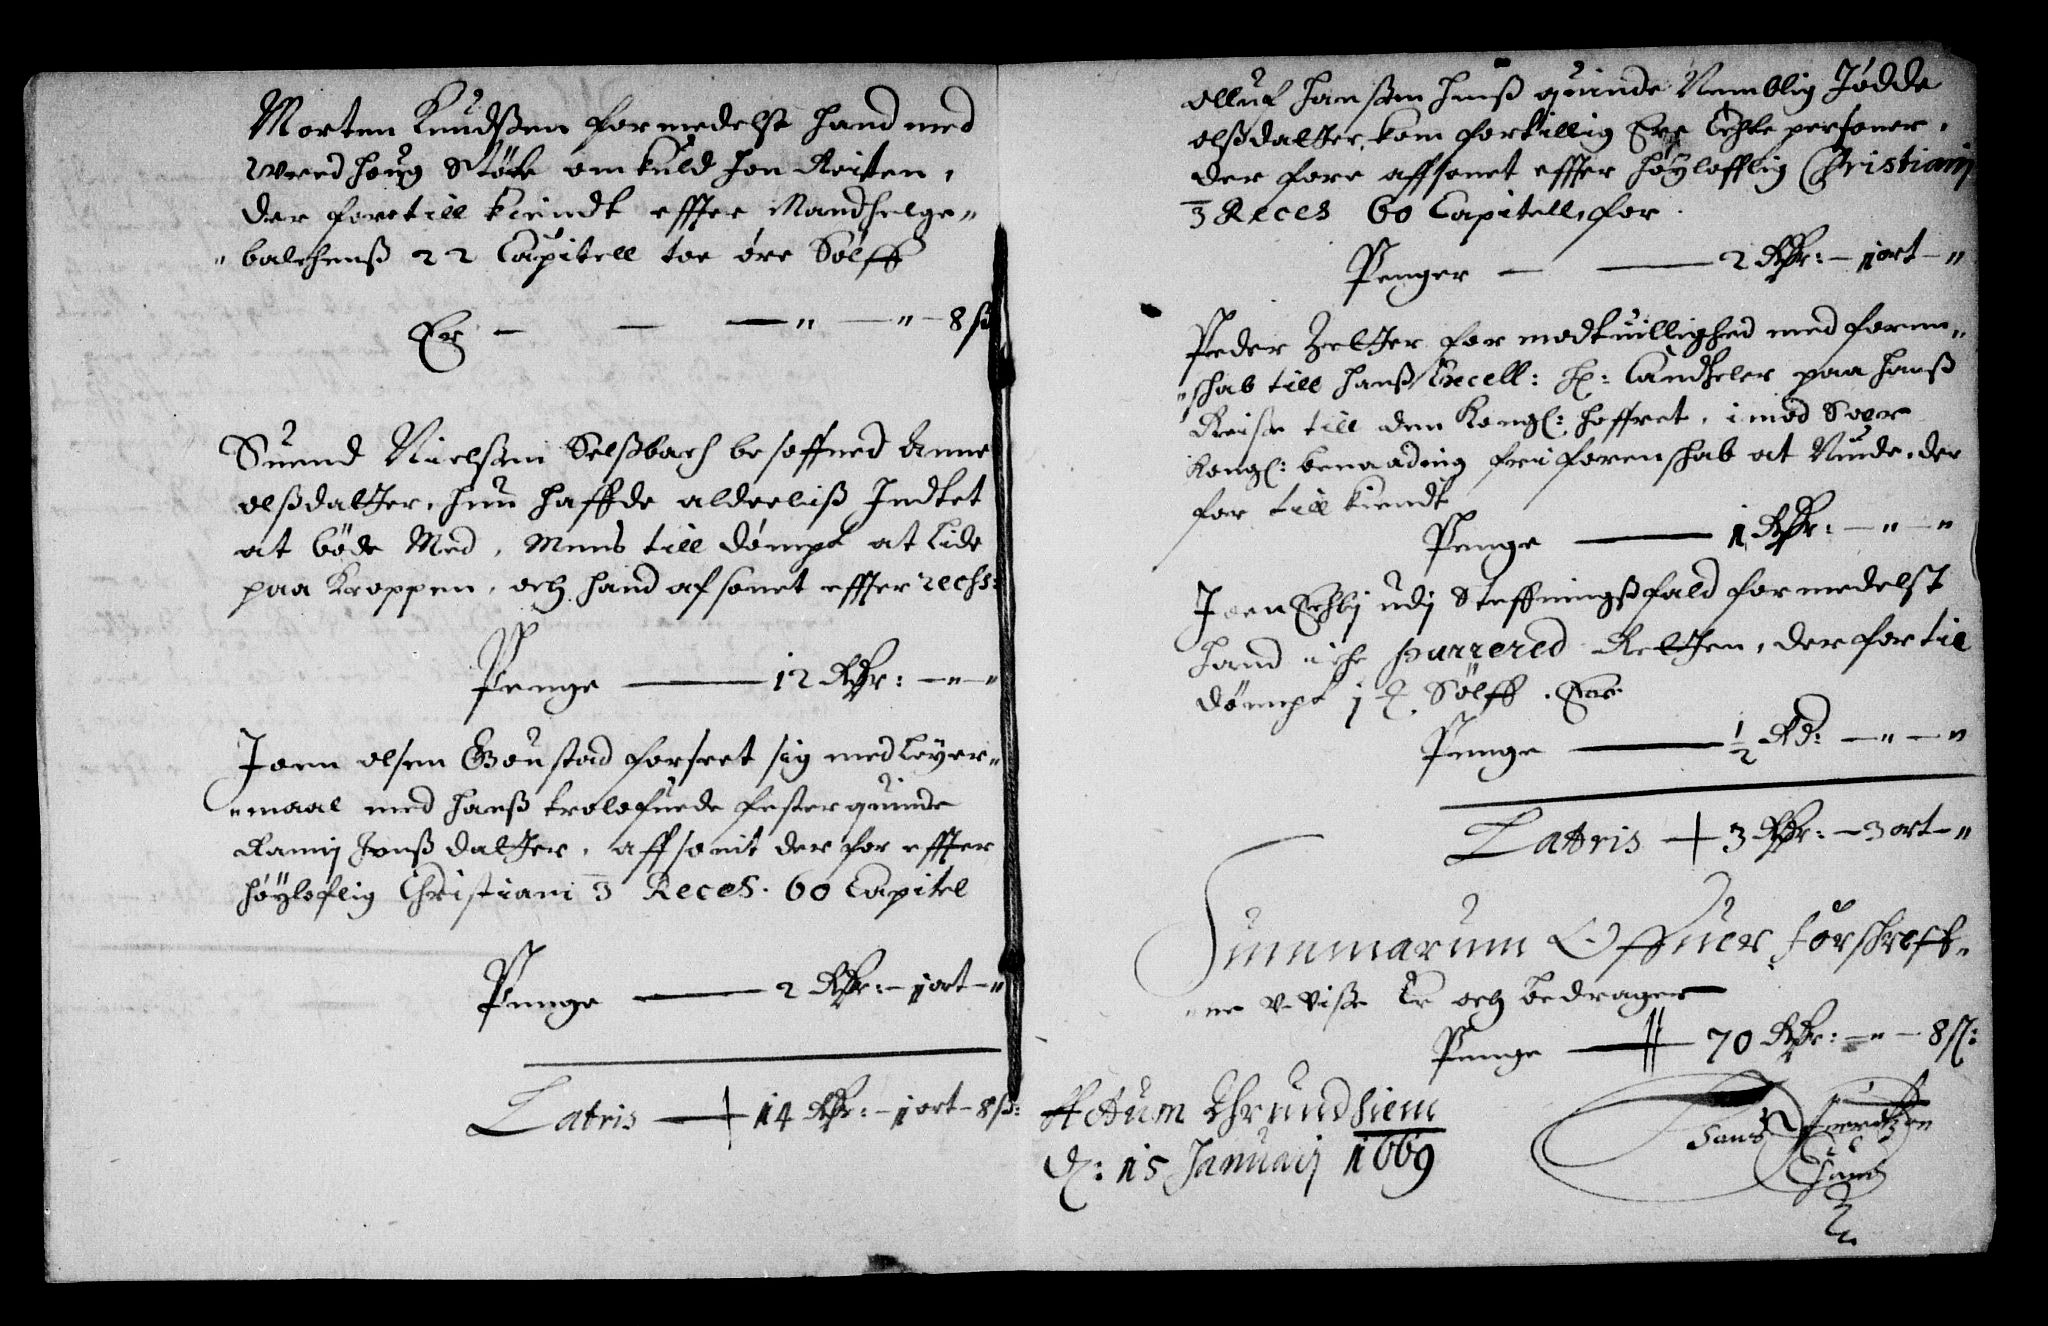 Morten Knudßen formedelst hand med
wred houg Støtte omkuld Jon Reitten,
der fore till kiendt effter Mandhelge„
„balchenß 22 Capitell toe øre Sølff
Er — — — „ — „ — 8 ß
Suend Nielsen Selßbach besoffued Anne
olßdatter, hun haffde alderliß Indtet
at böde Med, Mens till dömpt at Lide
paa Kroppen, och hand afsonet effter recess:
Penge — 12 Rdr: — „ — „
Joen olsen Goustad forseet sig med Leyer„
„maal med hanß trolofuede fester quinde
Ranni Jonßdatter, affsonit der for effter
höyloflig Christiani 3 Reces. 60 Capitel
Penge — 2 Rdr: — 1 ort — „
Latris — 14 Rdr: — 1 ort — 8 ß:
olluf hansen hans quinde Nemblig Jödde
olßdatter, kom fortillig Ere Echte personer,
der fore affsonet effter höylofflig Christianj
3 Reces 60 Capitell, for
Penger — — 2 Rdr: — 1 ort — „
Peder for modtuillighed med foren„
„schab till hanß Excell: H: Candheler paa hanß
Reise till den Kongl: hoffret, imod Voer
Kongl: benaading fri forenschab at Niude, der
for till kiendt
Penge — 1 Rdr: — „ — „
Joen Echbj udj Steffningßfald formedelst
hand iche parrered Retten, der for til
dömpt j Sölff. Er
Penge — ½ Rd: — „ — „
Lattris — 3 Rdr: — 3 ort — „
Summarum Offuer forschreff„
„ne v-viße Er och bedrager
Penge — 70 Rdr: — „ — 8 ß:
Actum Thrundhiem
d: 15 Januarij 1669
Hans